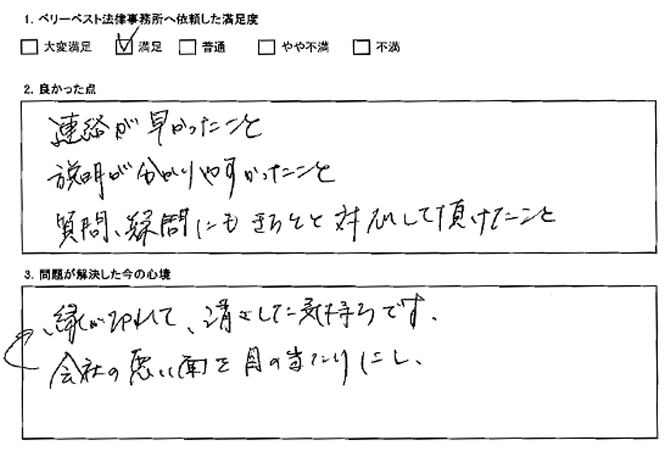 1. ベリーベスト法律事務所へ依頼した満足度
□ 大変満足 ☑ 満足 □ 普通 □ やや不満 □ 不満
2. 良かった点
連絡が早かったこと
説明が分かりやすかったこと
質問、疑問にもきちんと対応して頂けたこと
3. 問題が解決した今の心境
縁が切れて、清々した気持ちです。
会社の悪い面を目の当たりにし、